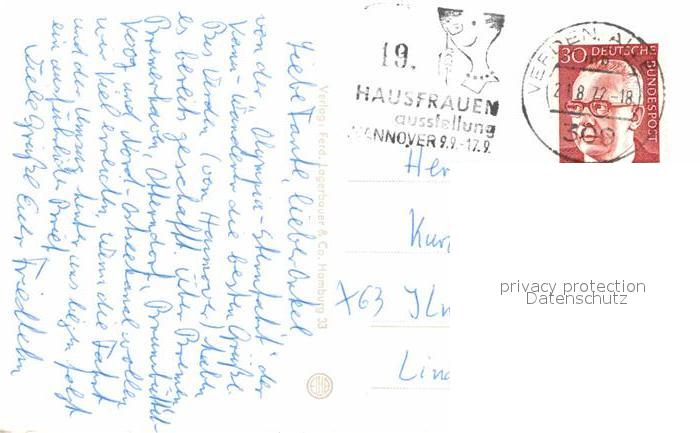 Liebe Tante, lieber Onkel
von der Olympia-Sternfahrt der
Kanu-Wanderer die besten Grüße.
Bis Verden (von Hannover) haben
es bereits geschafft. Über Bremen
Bremerhaven, Otterndorf, Brunsbüttel-
koog und Nord-Ostseekanal wollen
wir Kiel erreichen. Wenn die Fahrt
und der Umzug hinter uns liegen folgt
ein ausführlicher Brief.
Viele Grüße Euer Friedhelm
Verlag Ferd. Lagerbauer & Co., Hamburg 33
19.
HAUSFRAUEN
ausstellung
HANNOVER 9.9.-17.9.
VERDEN, ALLER
21.8.72-18
309
30 DEUTSCHE
BUNDESPOST
Her
Kur
763 Iln
Lin
privacy protection
Datenschutz